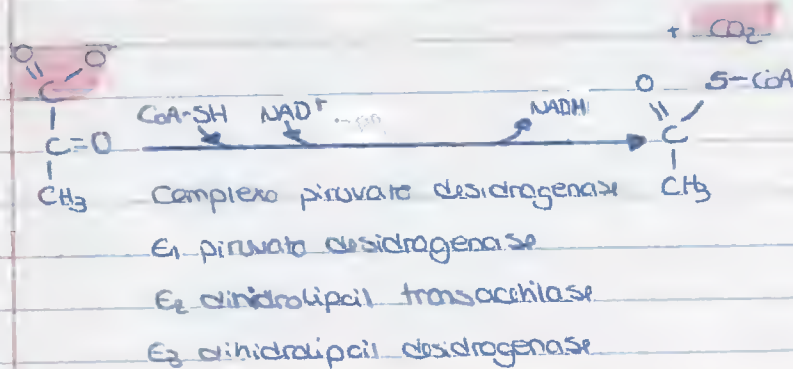 + CO2
O O-
C
CoA-SH NAD+ NADH
O S-CoA
C=O C
CH3 CH3
Complexo piruvato desidrogenase
E1 piruvato desidrogenase
E2 dihidrolipoil transacetilase
E3 dihidrolipoil desidrogenase